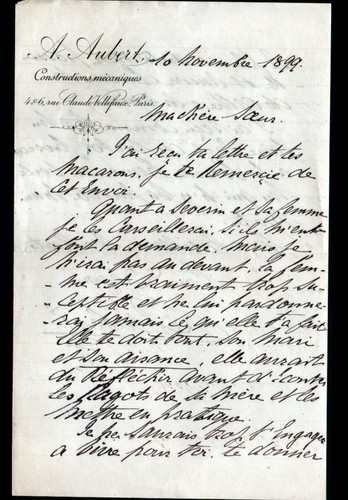 A. Aubert. 10 Novembre 1899.
Constructions mécaniques
4&6, rue Claude Vellefaux, Paris.
Ma chère Sœur.
J'ai reçu ta lettre et tes
macarons. je te Remercie de
cet Envoi.
Quant a severin et sa femme
je les Conseillerai, si ils m'en
font la demande. mais je
n'irai pas au devant, la fem-
me est vraiment trop sus-
ceptible et ne lui pardonne-
rai jamais ce qu'elle t'a fait
elle te doit tout, son mari
et son aisance, elle aurait
du Réfléchir avant d'écouter
les Ragots de sa mère et les
mettre en pratique.
Je ne saurais trop t'Engager
a vivre pour toi. te donner